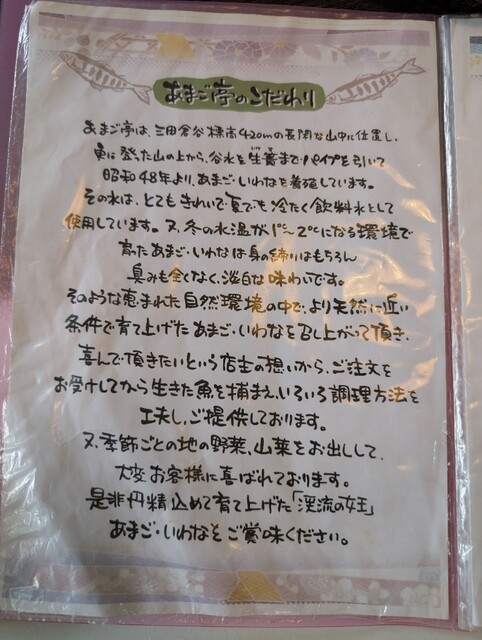 あまご亭のこだわり
あまご亭は、三田倉谷標高420mの長閑な山中に位置し、
更に登った山の上から、谷水を生簀までパイプを引いて
昭和48年より、あまご・いわなを養殖しています。
その水は、とてもきれいで夏でも冷たく飲料水として
使用しています。又、冬の水温が1℃~2℃になる環境で
育ったあまご・いわなは身の締りはもちろん
臭みも全くなく、淡白な味わいです。
そのような恵まれた自然環境の中で、より天然に近い
条件で育て上げたあまご・いわなを召し上がって頂き、
喜んで頂きたいという店主の想いから、ご注文を
お受けしてから生きた魚を捕まえ、いろいろ調理方法を
工夫し、ご提供しております。
又、季節ごとの地の野菜、山菜をお出しして、
大変お客様に喜ばれております。
是非丹精込めて育て上げた「渓流の女王」
あまご・いわなをご賞味ください。